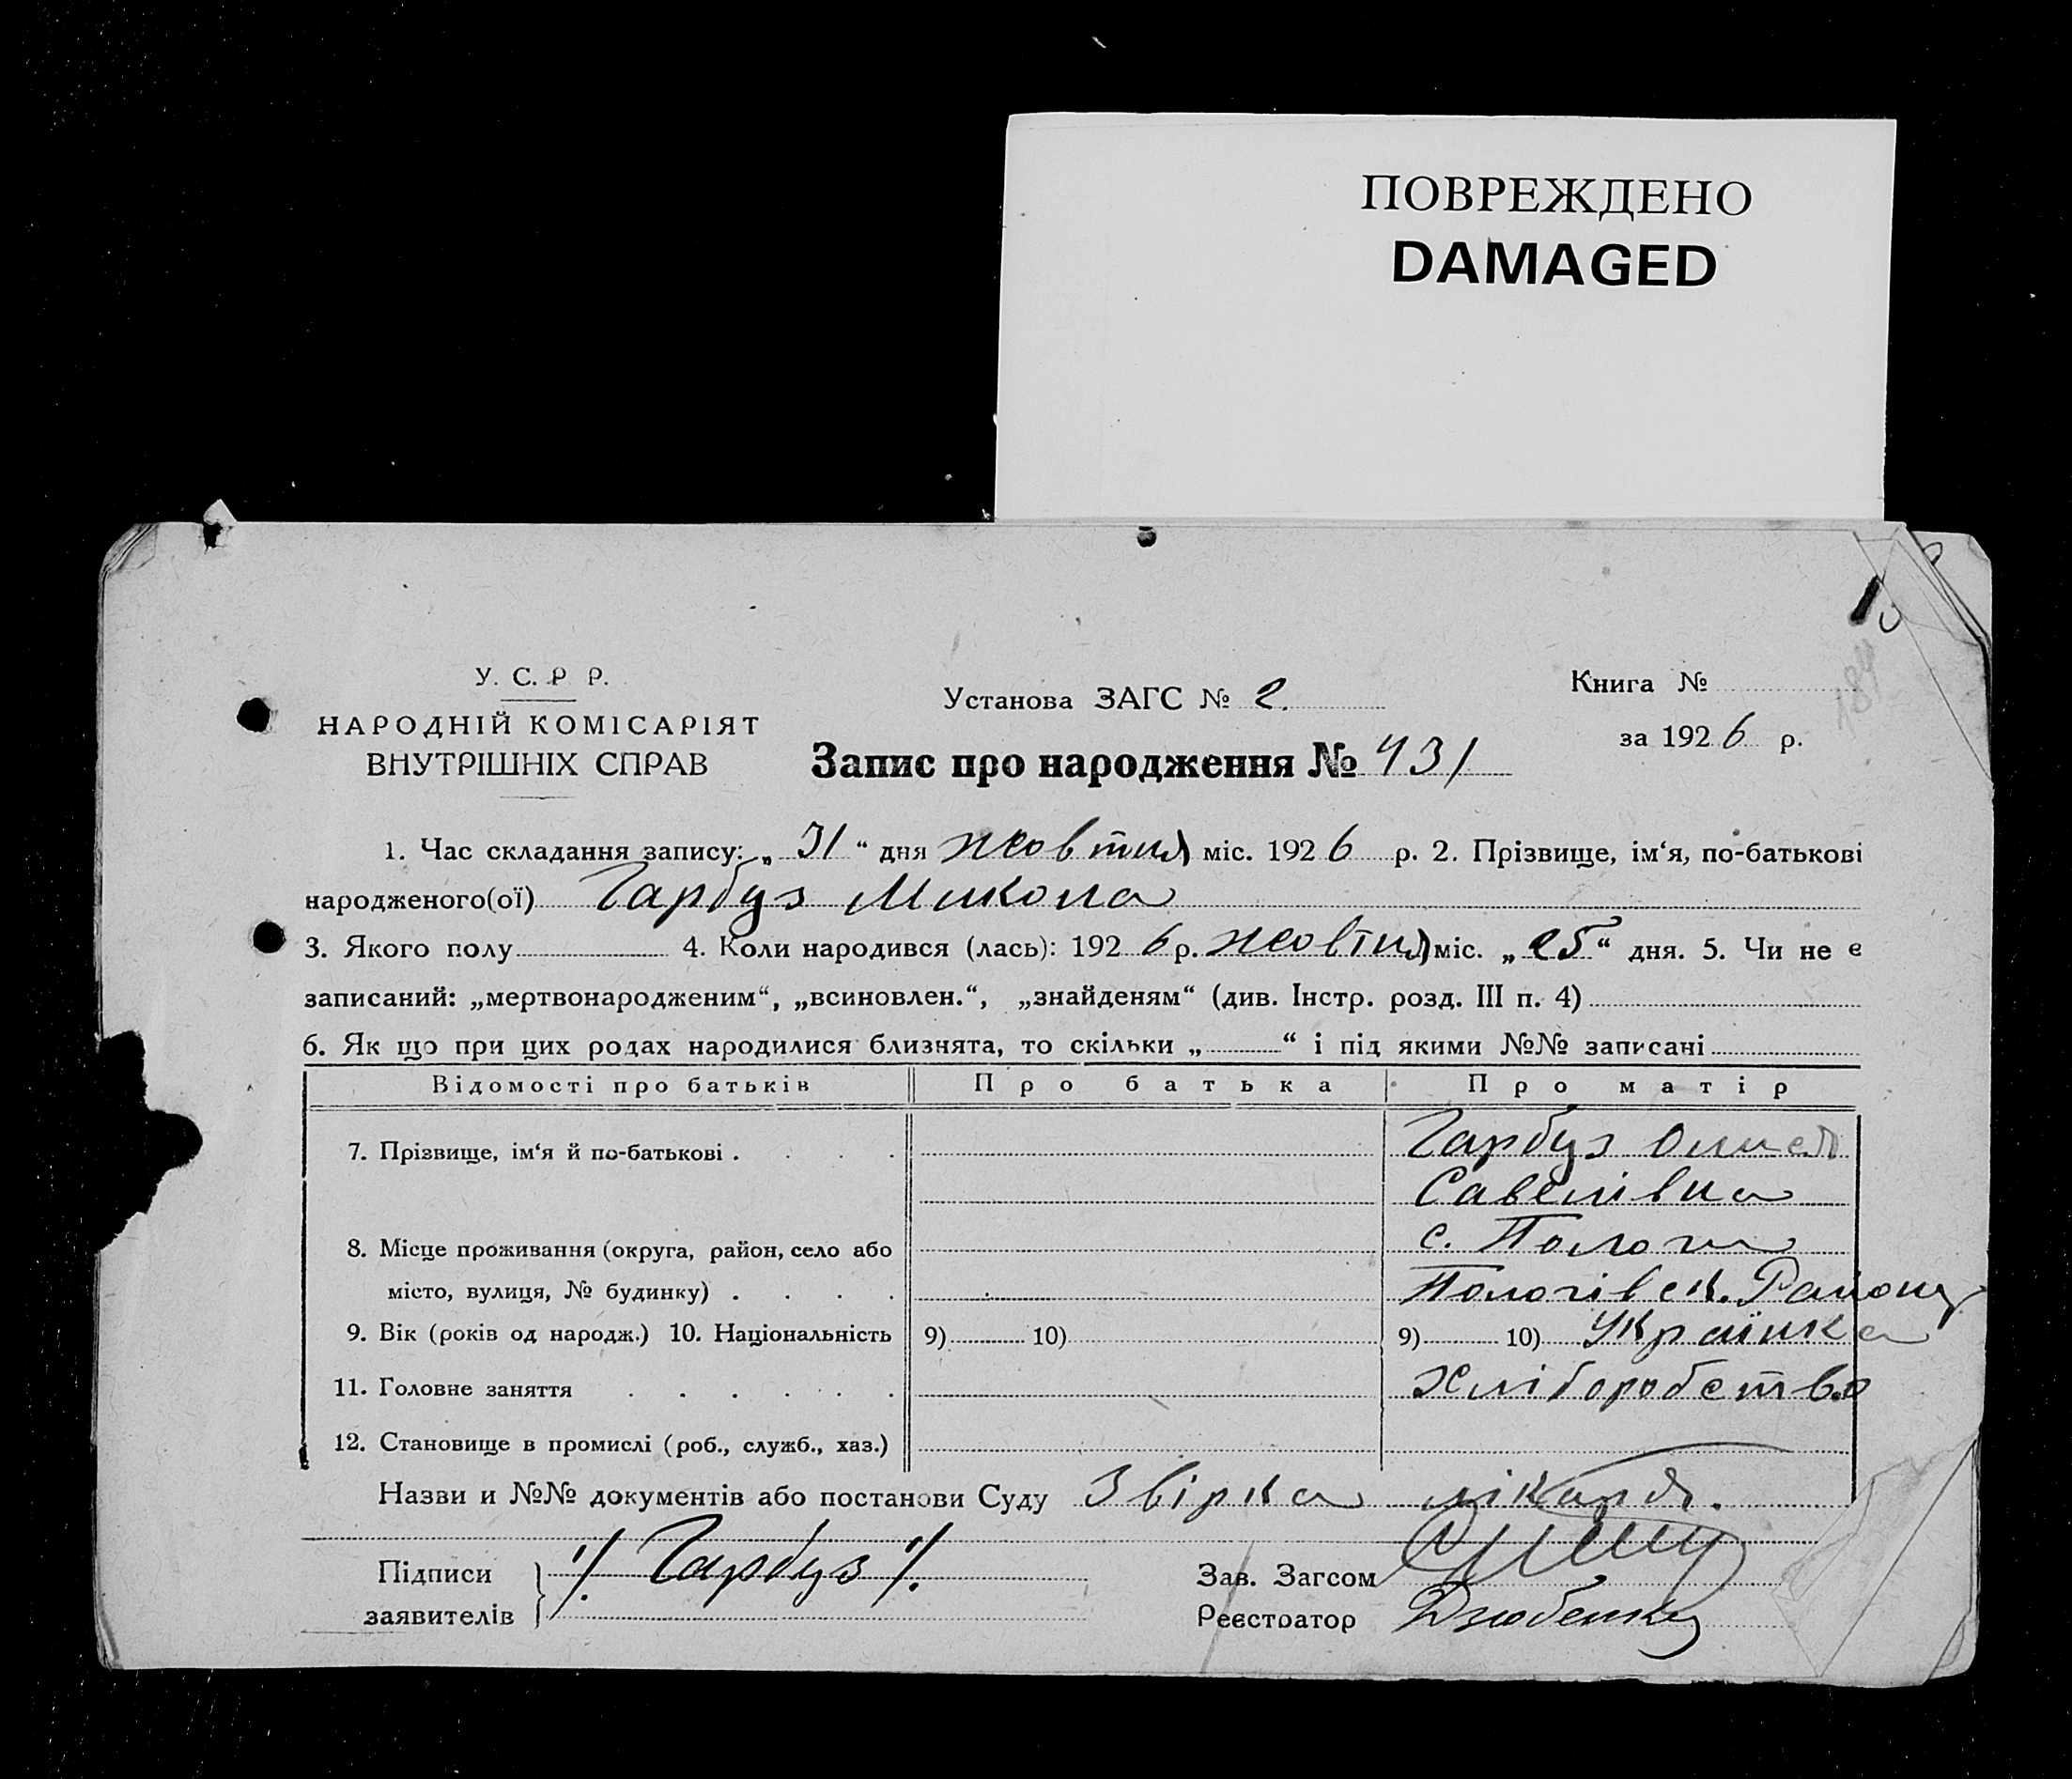 ПОВРЕЖДЕНО
DAMAGED
У. С. Р Р.
НАРОДНІЙ КОМІСАРІЯТ
ВНУТРІШНІХ СПРАВ
Установа ЗАГС № 2.
Запис про народження № 431
Книга №
за 1926 р.
1. Час складання запису: „31“ дня жовтня міс. 1926 р. 2. Прізвище, ім‘я, по-батькові
народженого(ої) Гарбуз Микола
3. Якого полу 4. Коли народився (лась): 1926 р. жовтня міс. „25“ дня. 5. Чи не є
записаний: „мертвонародженим“, „всиновлен.“, „знайденям“ (див. Інстр. розд. III п. 4)
6. Як що при цих родах народилися близнята, то скільки „ “ і під якими №№ записані
Відомості про батьків Про батька Про матір
7. Прізвище, ім‘я й по-батькові . Гарбуз
Савелівна
8. Місце проживання (округа, район, село або с. Пологи
місто, вулиця, № будинку) . Пологівськ. Району
9. Вік (років од народж.) 10. Національність 9) 10) 9) 10) Українка
11. Головне заняття Хліборобство
12. Становище в промислі (роб., служб., хаз.)
Назви и №№ документів або постанови Суду Звірка лікаря.
Підписи /Гарбуз/. Зав. Загсом
заявителів Реєстратор Дзюбенко